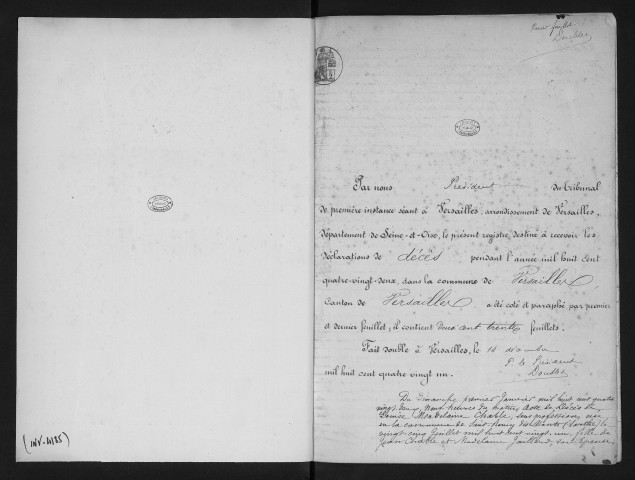 Doubles
Par nous Président du tribunal
de première instance séant à Versailles, arrondissement de Versailles,
département de Seine-et-Oise, le présent registre destiné à recevoir les
déclarations de décès pendant l'année mil huit cent
quatre-vingt-deux, dans la commune de Versailles
Canton de Versailles a été coté et paraphé, par premier
et dernier feuillet; il contient deux cent trente feuillets.
Fait double à Versailles, le 14
mil huit cent quatre vingt un.
P. le Président
Doublet
Du dimanche premier Janvier mil huit cent quatre
vingt deux, neuf heures du matin, acte de décès de
Louise Madelaine Chable, sans profession, née
en la commune de Saint (Sarthe) le
vingt cinq Juillet mil huit cent vingt un, fille de
Jean Chable et Madelaine
(INV-4185)